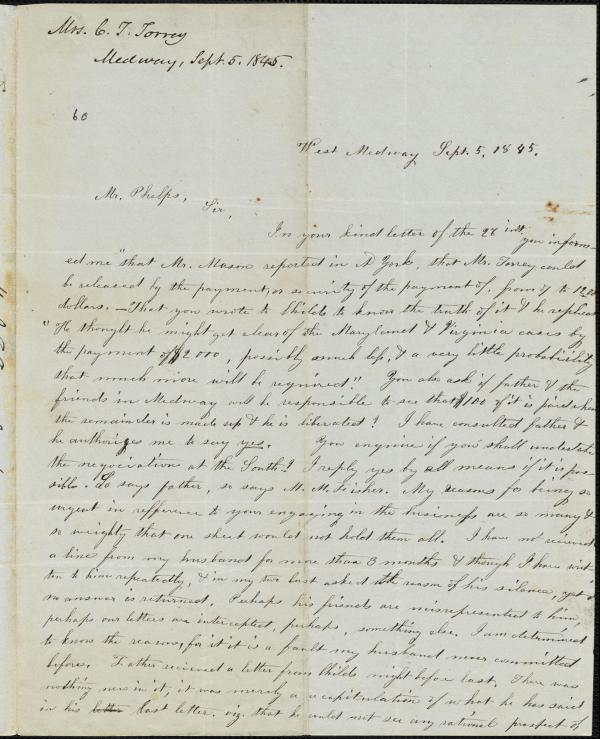 Mrs. C. T. Torrey
Medway, Sept. 5. 1845.
60
West Medway Sept. 5, 1845.
Mr. Phelps,
Sir,
In your kind letter of the 28 inst, you inform-
ed me "that Mr. Mason reported in N York, that Mr. Torrey could
be released by the payment, or security of the payment of, from to 1200
dollars. — That you wrote to Childs to know the truth of it & he replied
"He thought he might get clear of the Maryland & Virginia cases by
the payment of $2000, possibly much less, & a very little probability
that much more will be required." You also ask if father & the
friends in Medway will be responsible to see that $100 of it is paid when
the remainder is made up & he is liberated? I have consulted father &
he authorizes me to say yes. You enquire if you shall undertake
the negociations at the South? I reply yes by all means if it is pos-
sible. So says father, so says M. M. Fisher. My reasons for being so
urgent in refference to your engaging in the business are so many &
so weighty that one sheet would not hold them all. I have not recieved
a line from my husband for more than 3 months & though I have writ-
ten to him repeatedly, & in my two last asked the reason of his silence, yet
no answer is returned. Perhaps his friends are misrepresented to him,
perhaps our letters are intercepted, perhaps, something else. I am determined
to know the reason, for it is a fault my husband never committed
before. Father recieved a letter from Childs night before last. There was
nothing new in it, it was merely a recapitulation of what he has said
in his letter last letter. viz. that he could not see any rational prospect of